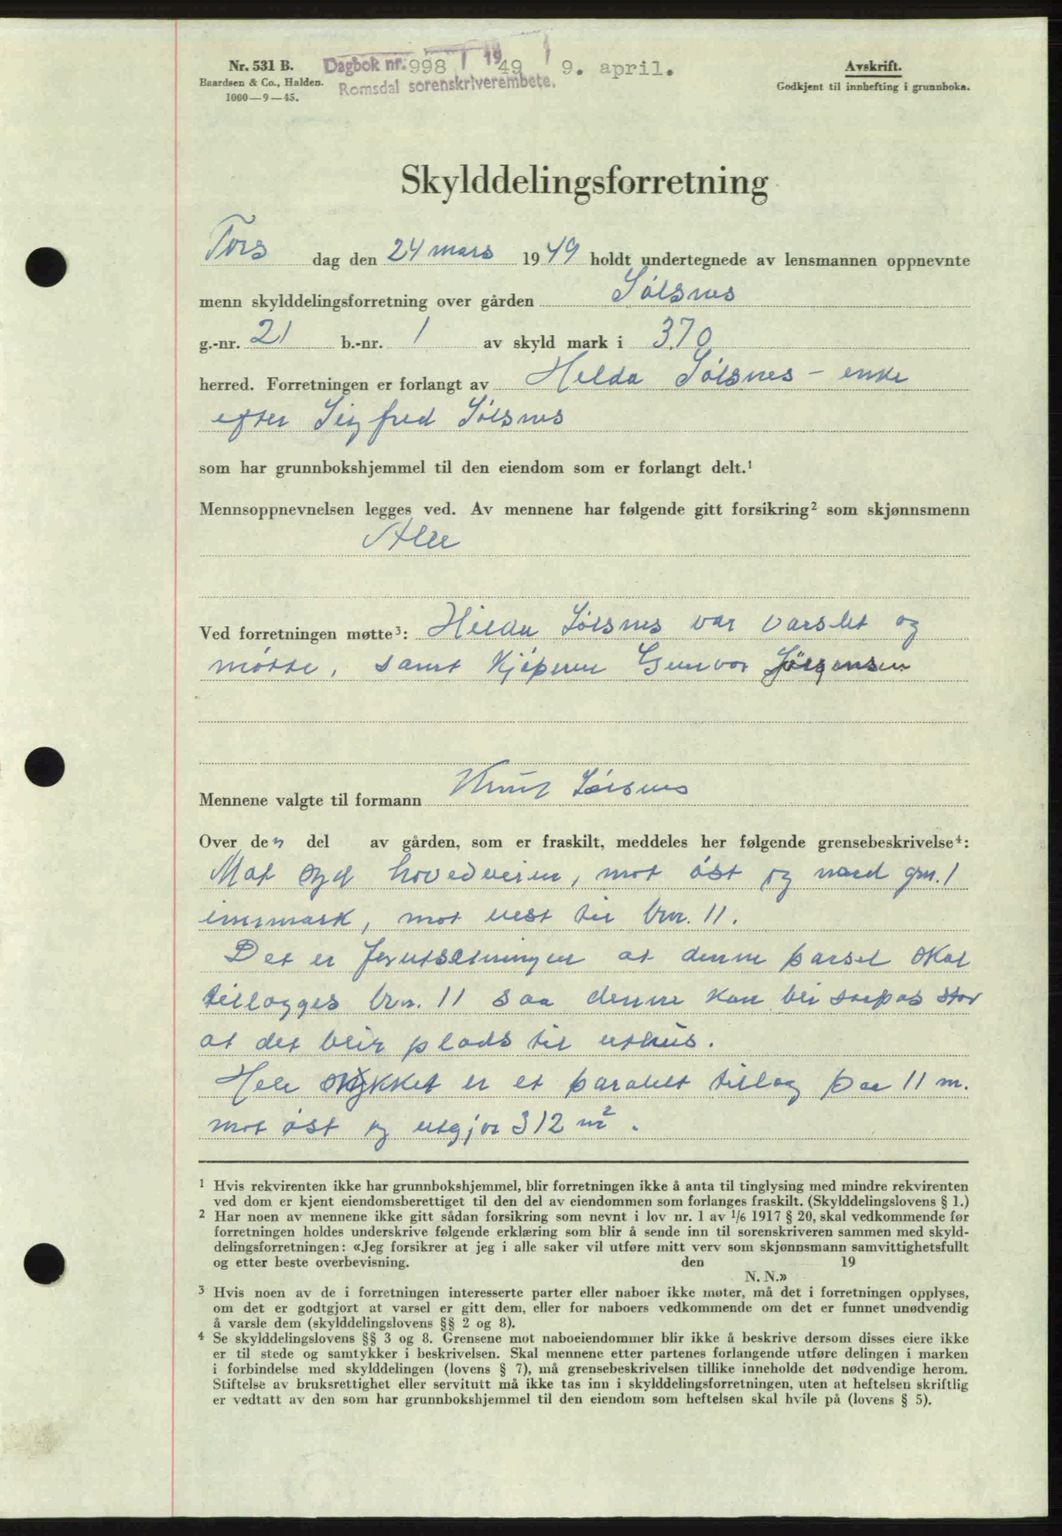 Nr. 531 B.
Baardsen & Co., Halden.
1000—9—45.
Dagbok nr. 998 1949 9. april.
Romsdal sorenskriverembete.
Avskrift.
Godkjent til innhefting i grunnboka.
Skylddelingsforretning
Tors dag den 24 mars 1949 holdt undertegnede av lensmannen oppnevnte
menn skylddelingsforretning over gården Sölsnes
g.-nr. 21 b.-nr. 1 av skyld mark i 3.70
herred. Forretningen er forlangt av Helda Sölsnes – enke
efter Sigfred Sölsnes
som har grunnbokshjemmel til den eiendom som er forlangt delt.¹
Mennsoppnevnelsen legges ved. Av mennene har følgende gitt forsikring² som skjønnsmenn
Alle
Ved forretningen møtte³: Hilda Sölsnes var varslet og
mötte, samt Kjöperen Gunvor Jörgensen
Mennene valgte til formann Knut Sölsnes
Over den del av gården, som er fraskilt, meddeles her følgende grensebeskrivelse⁴:
Mot syd hovedveien, mot öst og nord grn. 1
innmark, mot vest til brn. 11.
Det er forutsetningen at denne parsel skal
tillegges brn. 11 saa denne kan bli saapas stor
at det blir plads til uthus.
Hele stykket er et paralelt tilleg paa 11 m.
mot öst og utgjör 312 m².
¹ Hvis rekvirenten ikke har grunnbokshjemmel, blir forretningen ikke å anta til tinglysing med mindre rekvirenten
ved dom er kjent eiendomsberettiget til den del av eiendommen som forlanges fraskilt. (Skylddelingslovens § 1.)
² Har noen av mennene ikke gitt sådan forsikring som nevnt i lov nr. 1 av 1/6 1917 § 20, skal vedkommende før
forretningen holdes underskrive følgende erklæring som blir å sende inn til sorenskriveren sammen med skyld-
delingsforretningen: «Jeg forsikrer at jeg i alle saker vil utføre mitt verv som skjønnsmann samvittighetsfullt
og etter beste overbevisning. den 19
N. N.»
³ Hvis noen av de i forretningen interesserte parter eller naboer ikke møter, må det i forretningen opplyses,
om det er godtgjort at varsel er gitt dem, eller for naboers vedkommende om det er funnet unødvendig
å varsle dem (skylddelingslovens §§ 2 og 8).
⁴ Se skylddelingslovens §§ 3 og 8. Grensene mot naboeiendommer blir ikke å beskrive dersom disses eiere ikke
er til stede og samtykker i beskrivelsen. Skal mennene etter partenes forlangende utføre delingen i marken
i forbindelse med skylddelingen (lovens § 7), må grensebeskrivelsen tillike inneholde det nødvendige herom.
Stiftelse av bruksrettighet eller servitutt må ikke tas inn i skylddelingsforretningen, uten at heftelsen skriftlig
er vedtatt av den som har grunnbokshjemmel til den eiendom som heftelsen skal hvile på (lovens § 5).